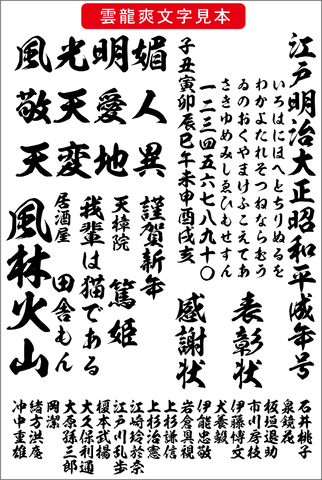 雲龍爽文字見本
江戸明治大正昭和平成年号
いろはにほへとちりぬるを
わかよたれそつねならむう
ゐのおくやまけふこえてあ
さきゆめみしゑひもせすん
一二三四五六七八九十〇
子丑寅卯辰巳午未申酉戌亥
媚人異
明愛地
光天変
風敬天
表彰状
感謝状
謹賀新年
篤姫
天樟院
我輩は猫である
田舎もん
居酒屋
風林火山
石井桃子
泉鏡花
板垣退助
市川房枝
伊藤博文
犬養毅
伊能忠敬
岩倉具視
上杉謙信
上杉治憲
江崎玲於奈
江戸川乱歩
榎本武揚
大久保利通
大原孫三郎
岡潔
緒方洪庵
沖中重雄